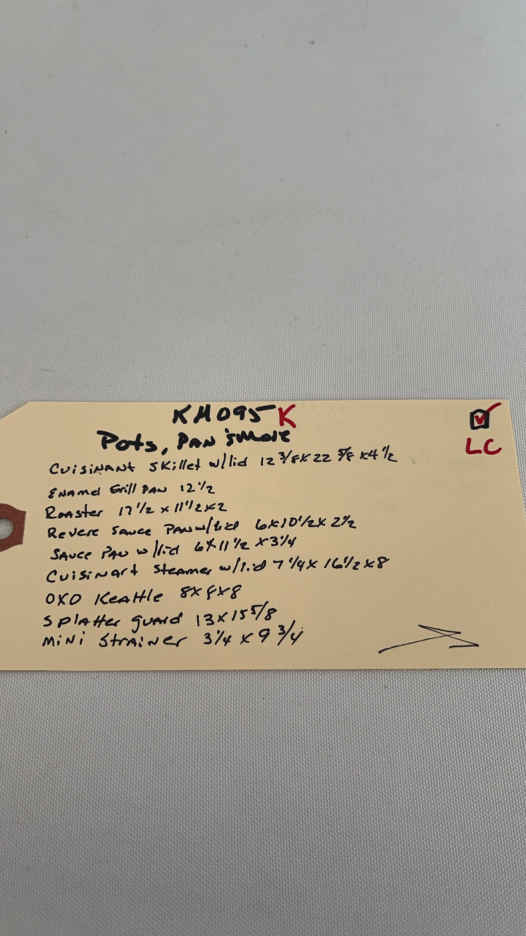 KH095 K
LC
Pots, PAN's More
Cuisinant Skillet w/lid 12 3/8 x 22 5/8 x 4 1/2
Enamel Grill Pan 12 1/2
Roaster 17 1/2 x 11 1/2 x 2
Revere Sauce Pan w/lid 6x10 1/2 x 2 1/2
Sauce Pan w/lid 6x11 1/2 x 3 1/4
Cuisinart Steamer w/lid 7 1/4 x 16 1/2 x 8
OXO Keattle 8x8x8
Splatter guard 13x15 5/8
Mini Strainer 3 1/4 x 9 3/4